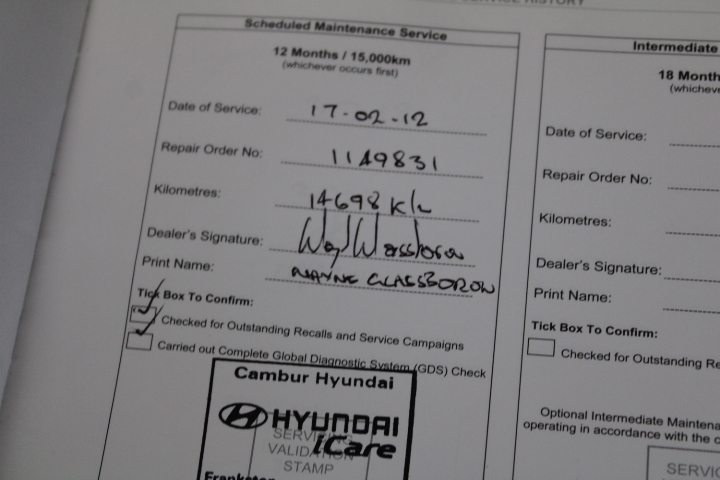 SERVICE HISTORY
Scheduled Maintenance Service
12 Months / 15,000km
(whichever occurs first)
Date of Service: 17-02-12
Repair Order No: 1149831
Kilometres: 14698 K/m
Dealer's Signature:
Print Name: WAYNE GLASSBOROW
Tick Box To Confirm:
Checked for Outstanding Recalls and Service Campaigns
Carried out Complete Global Diagnostic System (GDS) Check
Cambur Hyundai
HYUNDAI
iCare
SERVICING
VALIDATION
STAMP
Intermediate
18 Month
(whicheve
Date of Service:
Repair Order No:
Kilometres:
Dealer's Signature:
Print Name:
Tick Box To Confirm:
Checked for Outstanding Re
Optional Intermediate Maintena
operating in accordance with the c
SERVIC